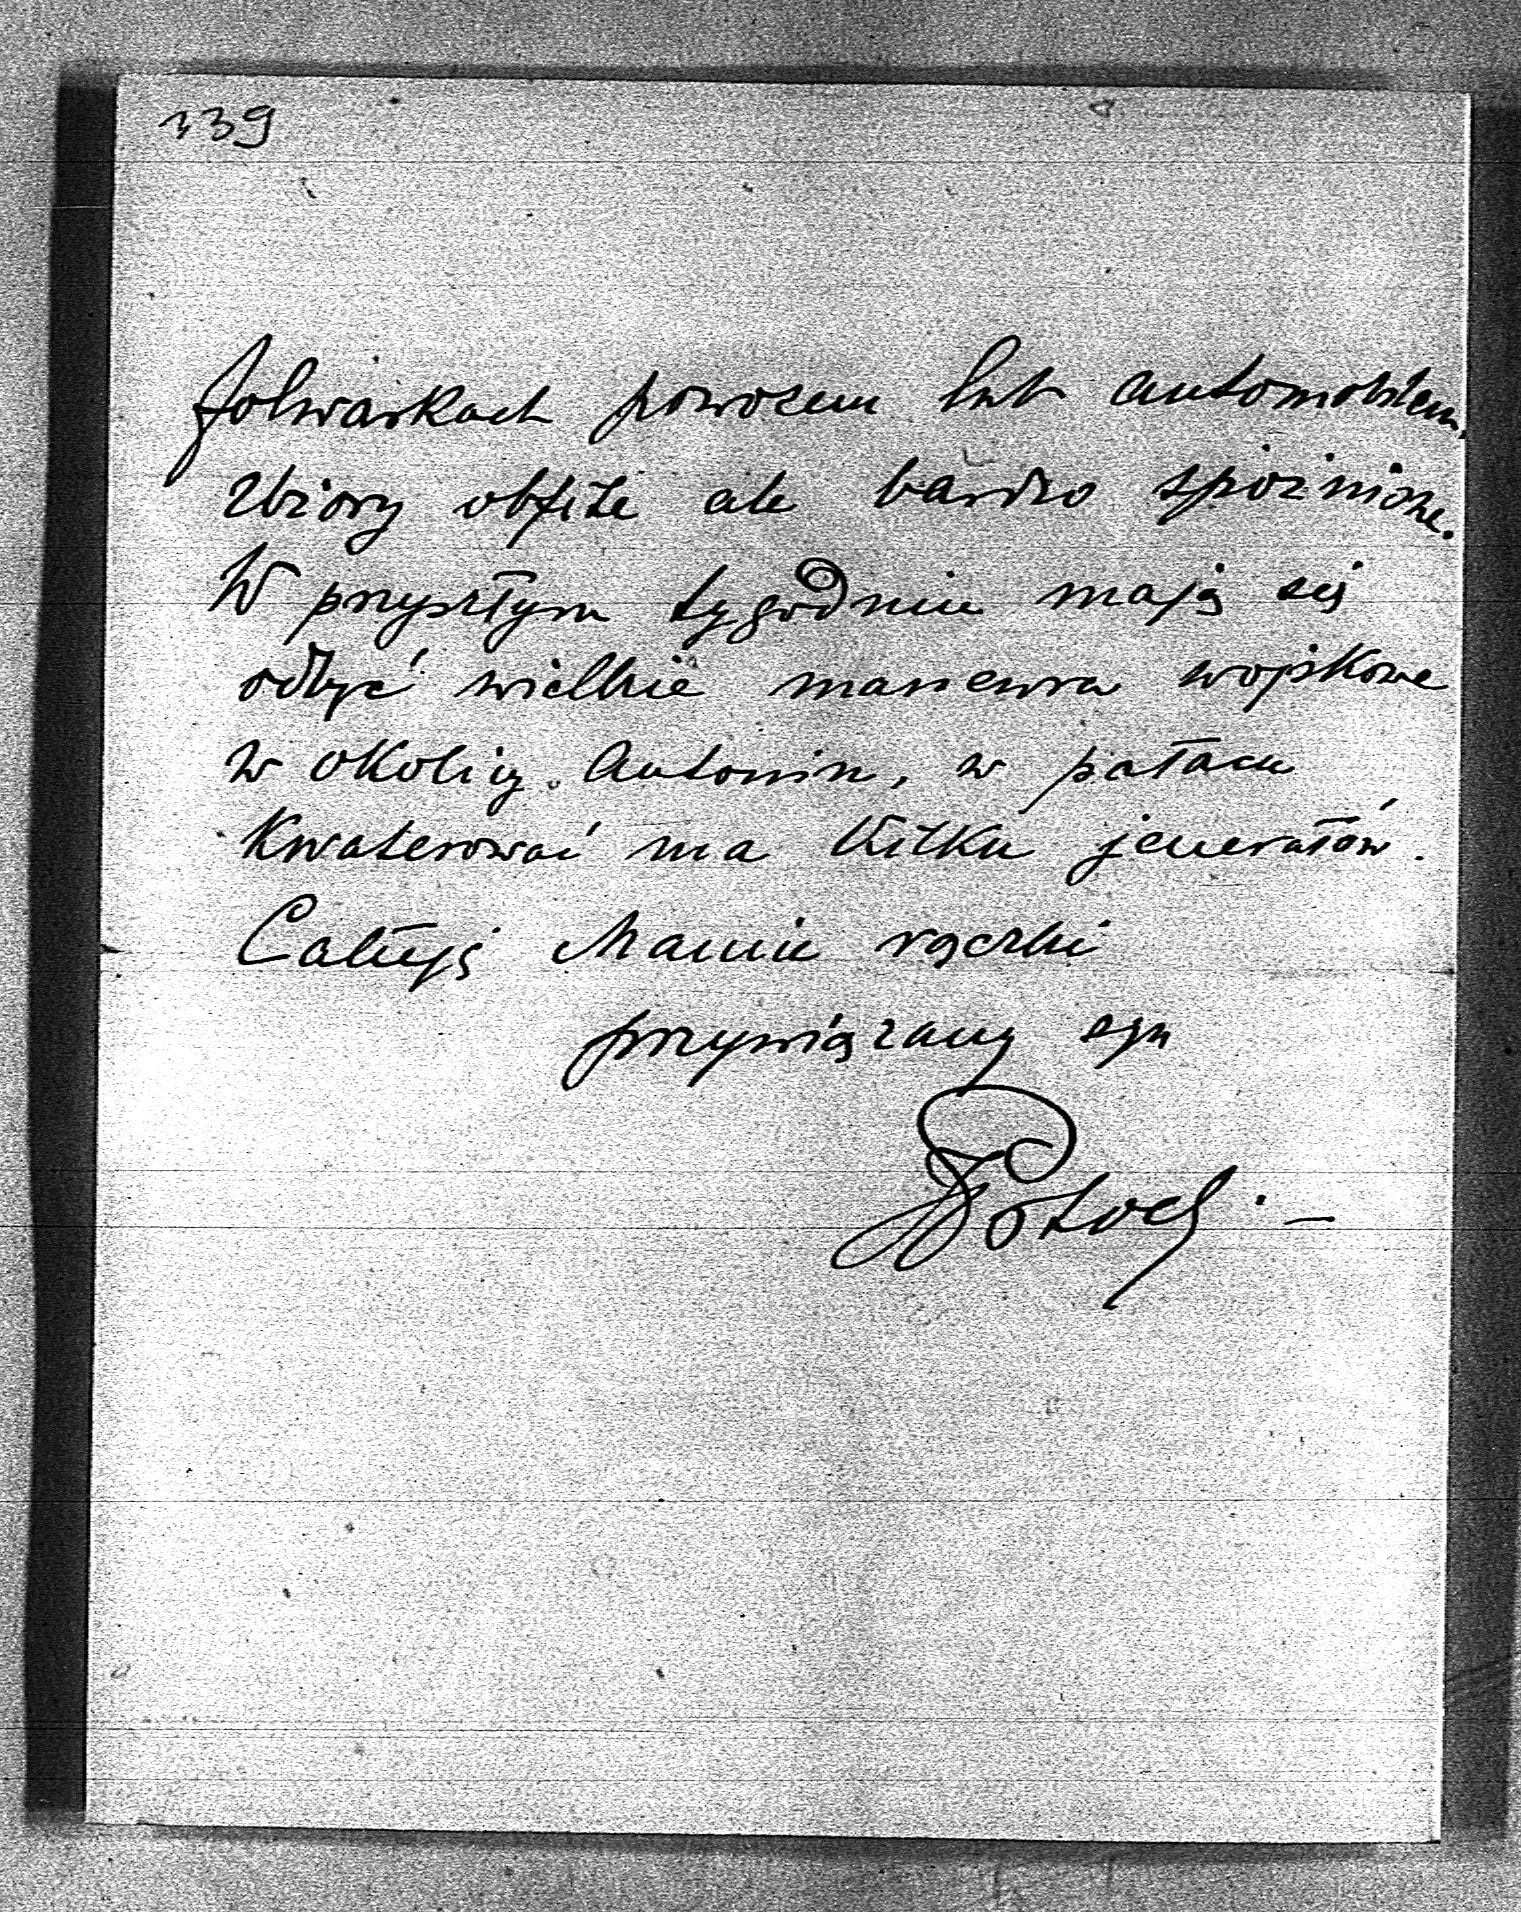 339
folwarkach powozem lub automobilem.
Zbiory obfite ale bardzo spóźnione.
W przyszłym tygodniu mają się
odbyć wielkie manewra wojskowe
w okolicy Antonin, w pałacu
kwaterować ma kilku jenerałów.
Całuję Mamie rączki
przywiązany syn
JPotocki. —